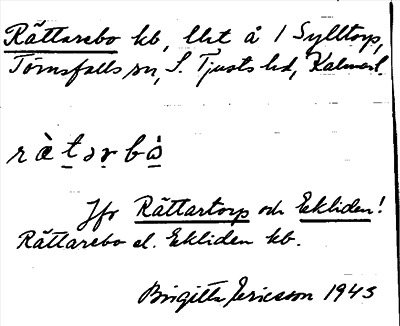 Rättarebo kb, lht å 1 Sylltorp,
Törnsfalls sn, S. Tjusts hd, Kalmar l.
rằtərbò
Jfr Rättartorp och Ekliden!
Rättarebo el. Ekliden kb.
Birgitta Ericsson 1945